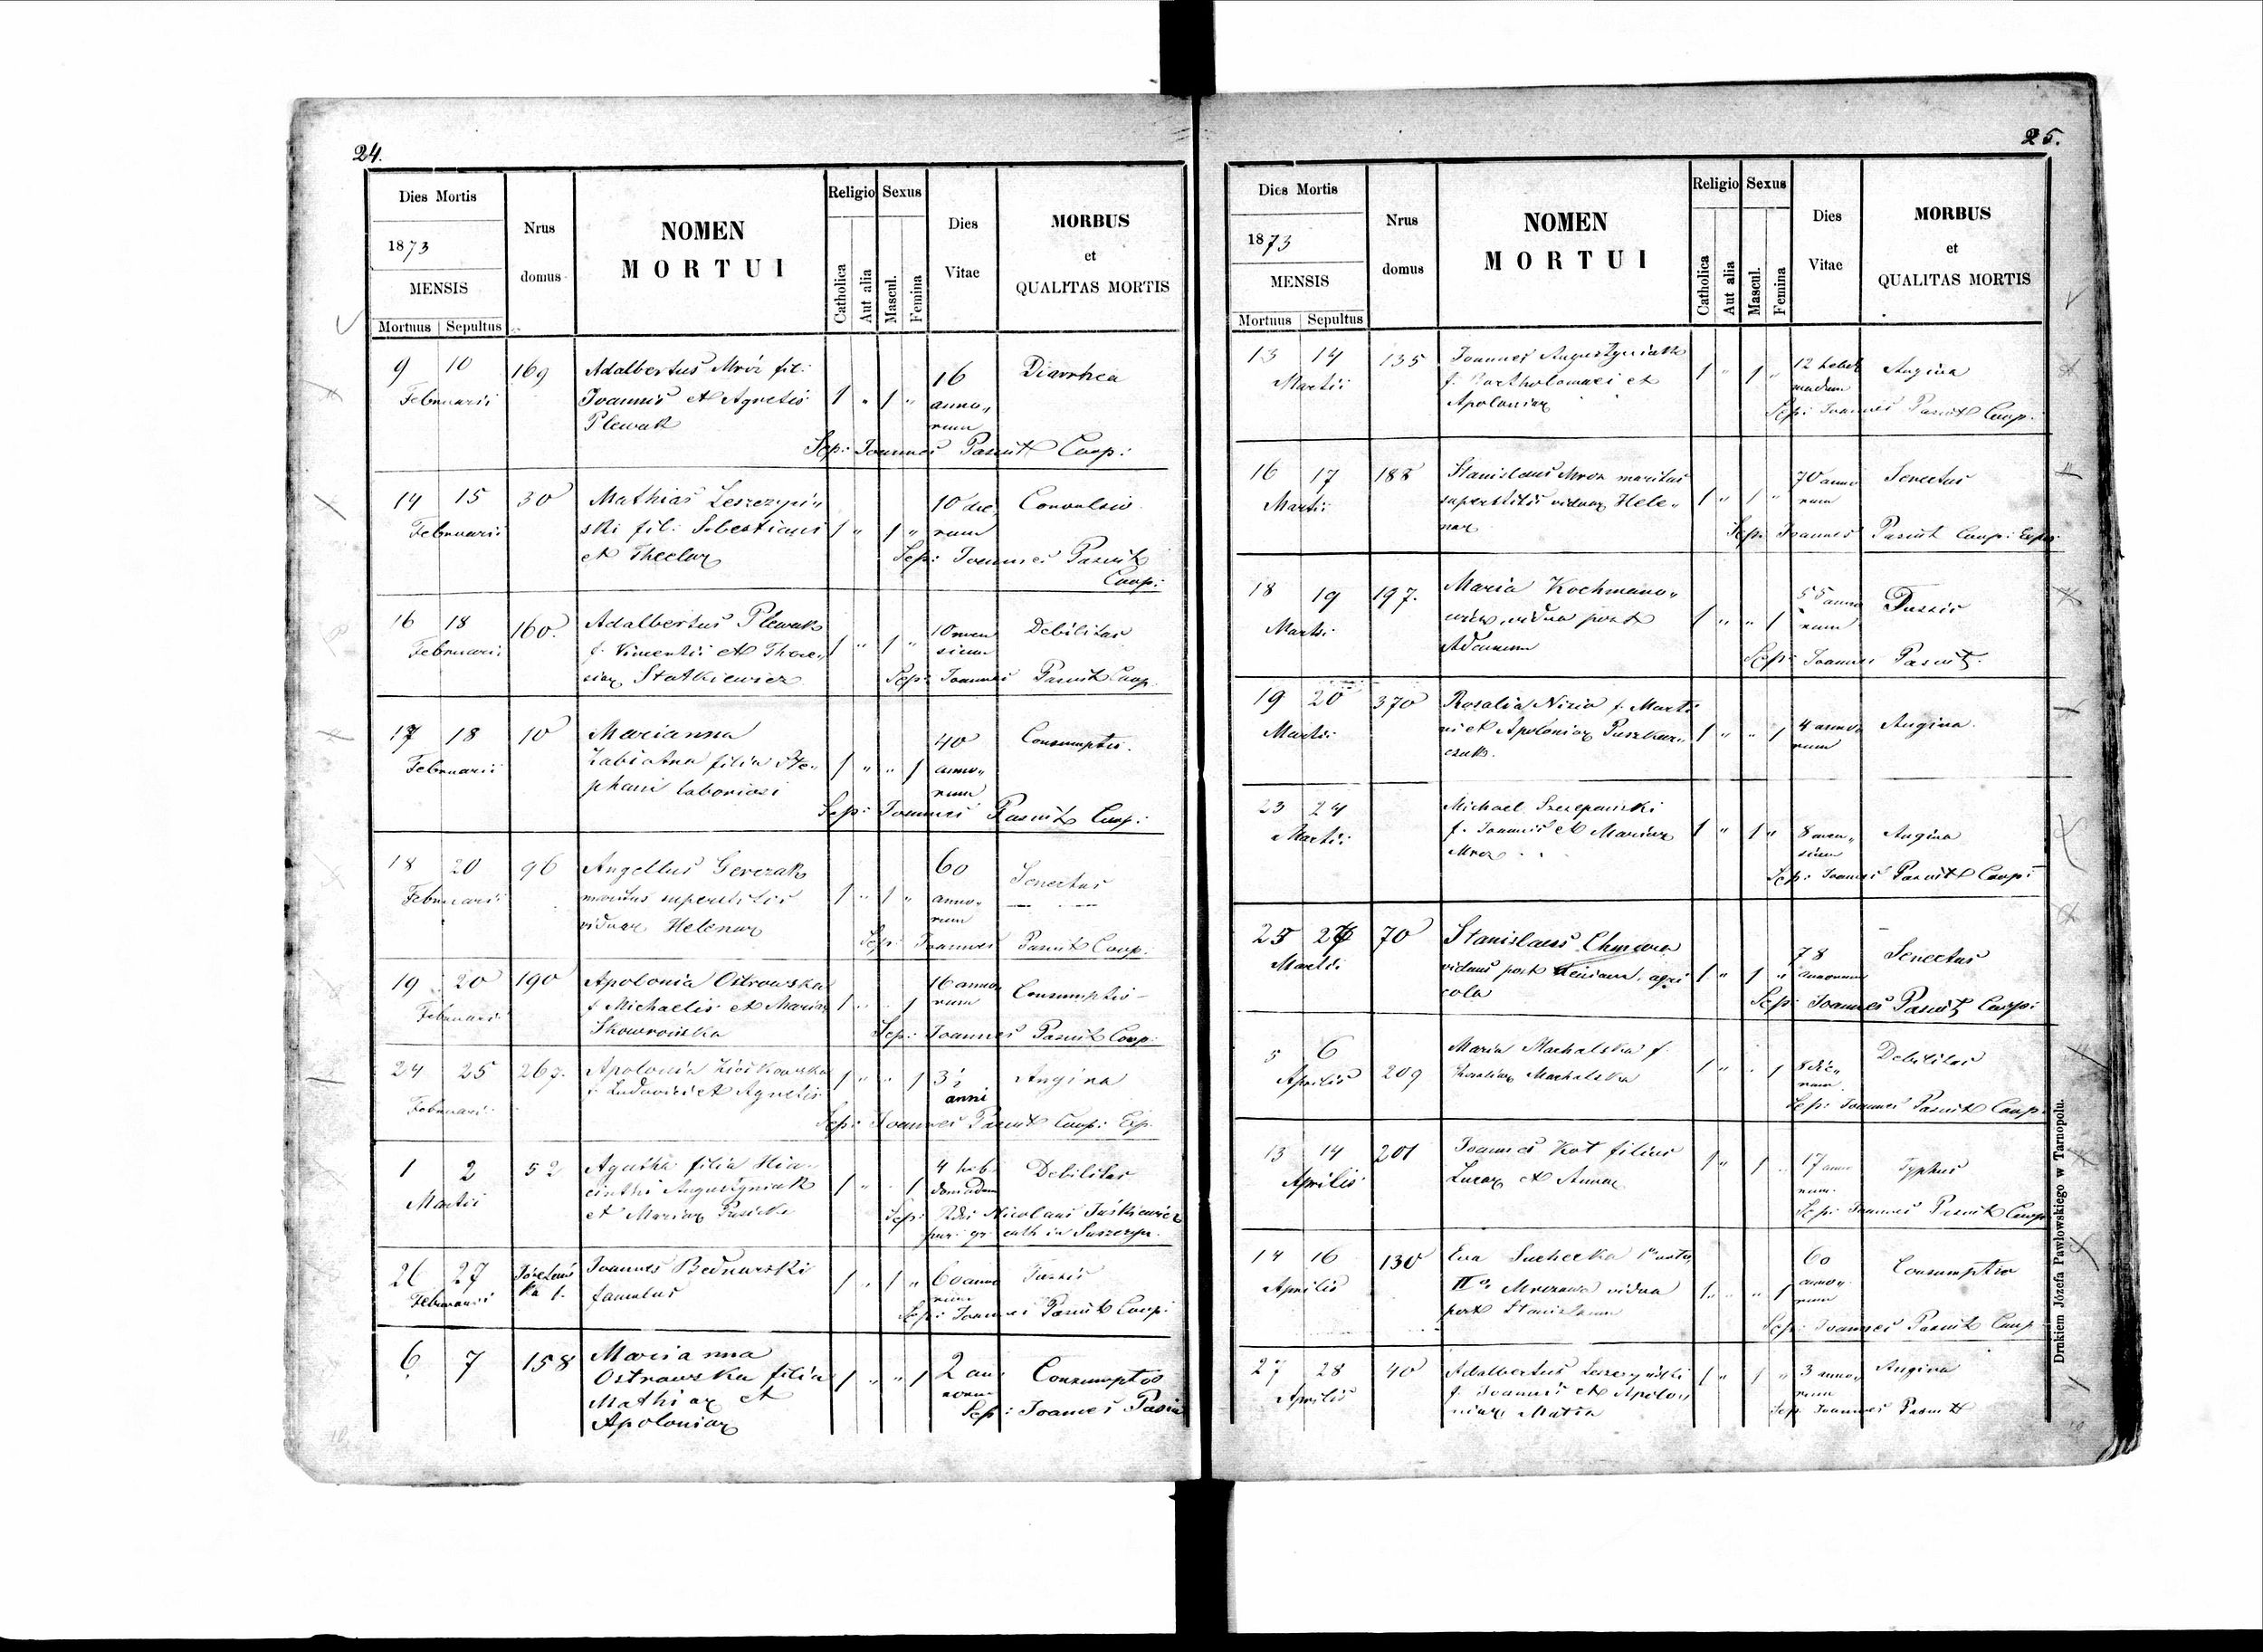 24.
Dies Mortis
1873
MENSIS
Mortuus Sepultus
Nrus
domus
NOMEN
MORTUI
Religio
Catholica
Aut alia
Sexus
Mascul.
Femina
Dies
Vitae
MORBUS
et
QUALITAS MORTIS
9 10 169 Adalbertus Mróz fil: 16 Diarrhea
Februarii Joannis et Agnetis 1 " 1 " anno„
Plewak rum
Sep: Joannes Pasiut Coop:
14 15 30 Mathias Leszczyń„ 10 die„ Convulsio
Februarii ski fil: Sebestiani 1 " 1 " rum
et Theclae Sep: Joannes Pasiut
Coop:
16 18 160. Adalbertus Plewak 1 " 1 " 10 men Debilitas
Februarii f. Vincentii et There„ sium
siae Statkiewicz Sep: Joannes Pasiut Coop.
17 18 10 Marianna 40 Consumptio.
Februarii filia Ste„ 1 " " 1 anno„
phani laboriosi rum
Sep: Joannes Pasiut Coop:
18 20 96 Angellus Gerczak 60 Senectus
Februarii maritus superstitis 1 " 1 " anno„
viduae Helenae rum
Sep: Joannes Pasiut Coop:
19 20 190 Apolonia Ostrowska 16 anno Consumptio
Februarii f. Michaelis et Mariae 1 " " 1 rum
Skowrońska Sep: Joannes Pasiut Coop:
24 25 267. Apolonia 1 " " 1 3½ Angina
Februarii f. Ludovici et Agnetis anni
Sep: Joannes Pasiut Coop: Exp.
1 2 52 filia Hia„ 4 heb„ Debilitas
Martii cinthi Augustyniak 1 " " 1 domadum
et Mariae Sep: Nicolaus
par: gr: cath in
26 27 Joannes Bednarski 1 " 1 " 60 anno Tussis
Februarii famulus rum
Sep: Joannes Pasiut Coop:
6 7 158 Marianna 2 an„ Consumptio
Ostrowska filia 1 " " 1 norum
Mathiae et Sep: Joannes
Apoloniae
25.
Dies Mortis
1873
MENSIS
Mortuus Sepultus
Nrus
domus
NOMEN
MORTUI
Religio
Catholica
Aut alia
Sexus
Mascul.
Femina
Dies
Vitae
MORBUS
et
QUALITAS MORTIS
13 14 135 Joannes Augustyniak 1 " 1 " 12 hebdo Angina
Martii f. Bartholomaei et madum
Apoloniae Sep: Joannes Pasiut Coop:
16 17 188 Stanislaus Mroz maritus 70 anno Senectus
Martii superstitis viduae Hele„ 1 " 1 " rum
nae Sep: Joannes Pasiut Coop: Expo:
18 19 197. Maria Kochmano„ 55 anno Tussis
Martii wicz, vidua post 1 " " 1 rum
Adamum Sep: Joannes Pasiut.
19 20 370 Rosalia Nizio f. Marti
Martii ni et Apoloniae Puszkar„ 1 " " 1 4 anno Angina.
czuk. rum
23 24 Michael Szczepański
Martii f. Joannis et Mariae 1 " 1 " 8 men„ Angina
Mroz sium
Sep: Joannes Pasiut Coop:
25 26 70 Stanislaus Chmura 78 Senectus
Martii viduus post agri 1 " 1 " annorum
cola Sep: Joannes Pasiut Coop:
5 6 Maria Machalska f. 1 " " 1 8 die„ Debilitas
Aprilis 209 Rosaliae Machalska rum
Sep: Joannes Pasiut Coop:
13 14 201 Joannes Kot filius 1 " 1 " 17 anno Typhus
Aprilis Lucae et Annae rum.
Sep: Joannes Pasiut Coop:
14 16 130 Eva Suchecka 60 Consumptio
Aprilis IIo vidua 1 " " 1 anno„
post Stanislaum rum
Sep: Joannes Pasiut Coop
27 28 40 Adalbertus Leszczyński 1 " 1 " 3 anno„ Angina
Aprilis f. Joannis et Apolo„ rum
niae Matia Sep: Joannes Pasiut
Drukiem Józefa Pawłowskiego w Tarnopolu.